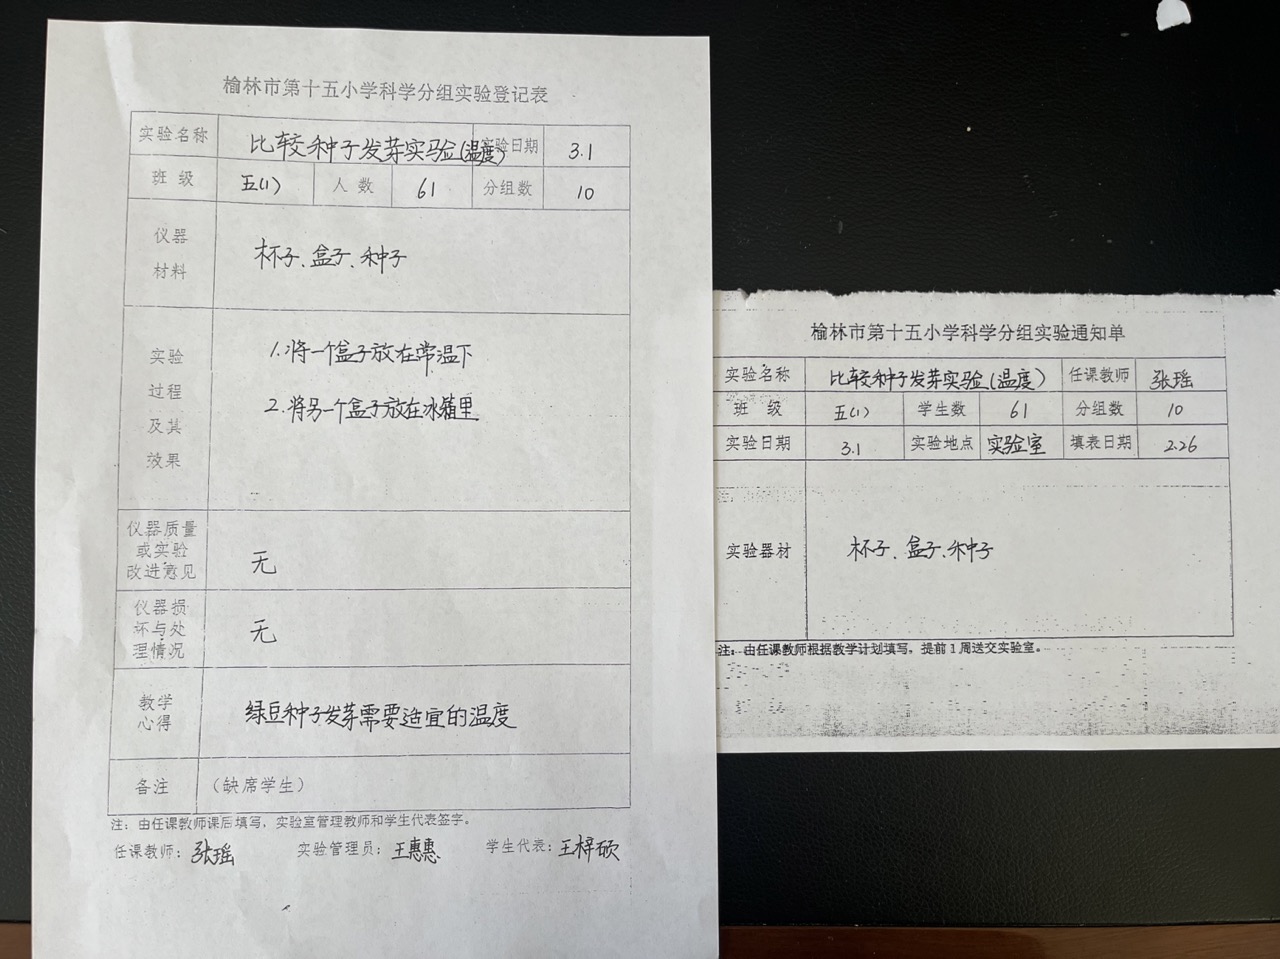 榆林市第十五小学科学分组实验登记表
实验名称 比较种子发芽实验(温度) 实验日期 3.1
班 级 五(1) 人 数 61 分组数 10
仪器
材料
杯子、盒子、种子
实验
过程
及其
效果
1.将一个盒子放在常温下
2.将另一个盒子放在冰箱里
仪器质量
或实验
改进意见
无
仪器损
坏与处
理情况
无
教学
心得
绿豆种子发芽需要适宜的温度
备注 (缺席学生)
注:由任课教师课后填写,实验室管理教师和学生代表签字。
任课教师:张瑶 实验管理员:王惠惠 学生代表:王梓硕
榆林市第十五小学科学分组实验通知单
实验名称 比较种子发芽实验(温度) 任课教师 张瑶
班 级 五(1) 学生数 61 分组数 10
实验日期 3.1 实验地点 实验室 填表日期 2.26
实验器材 杯子、盒子、种子
注:由任课教师根据教学计划填写,提前1周送交实验室。